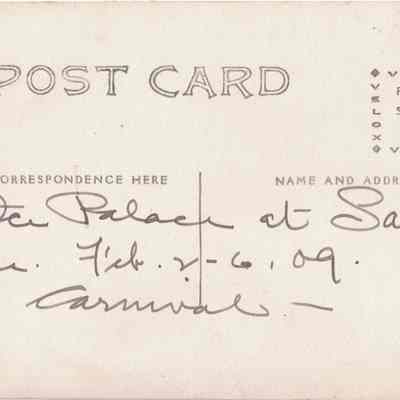 POST CARD
VELOX
CORRESPONDENCE HERE
NAME AND ADDR
Ice Palace at Sa
Feb. 2-6, 09.
Carnival —